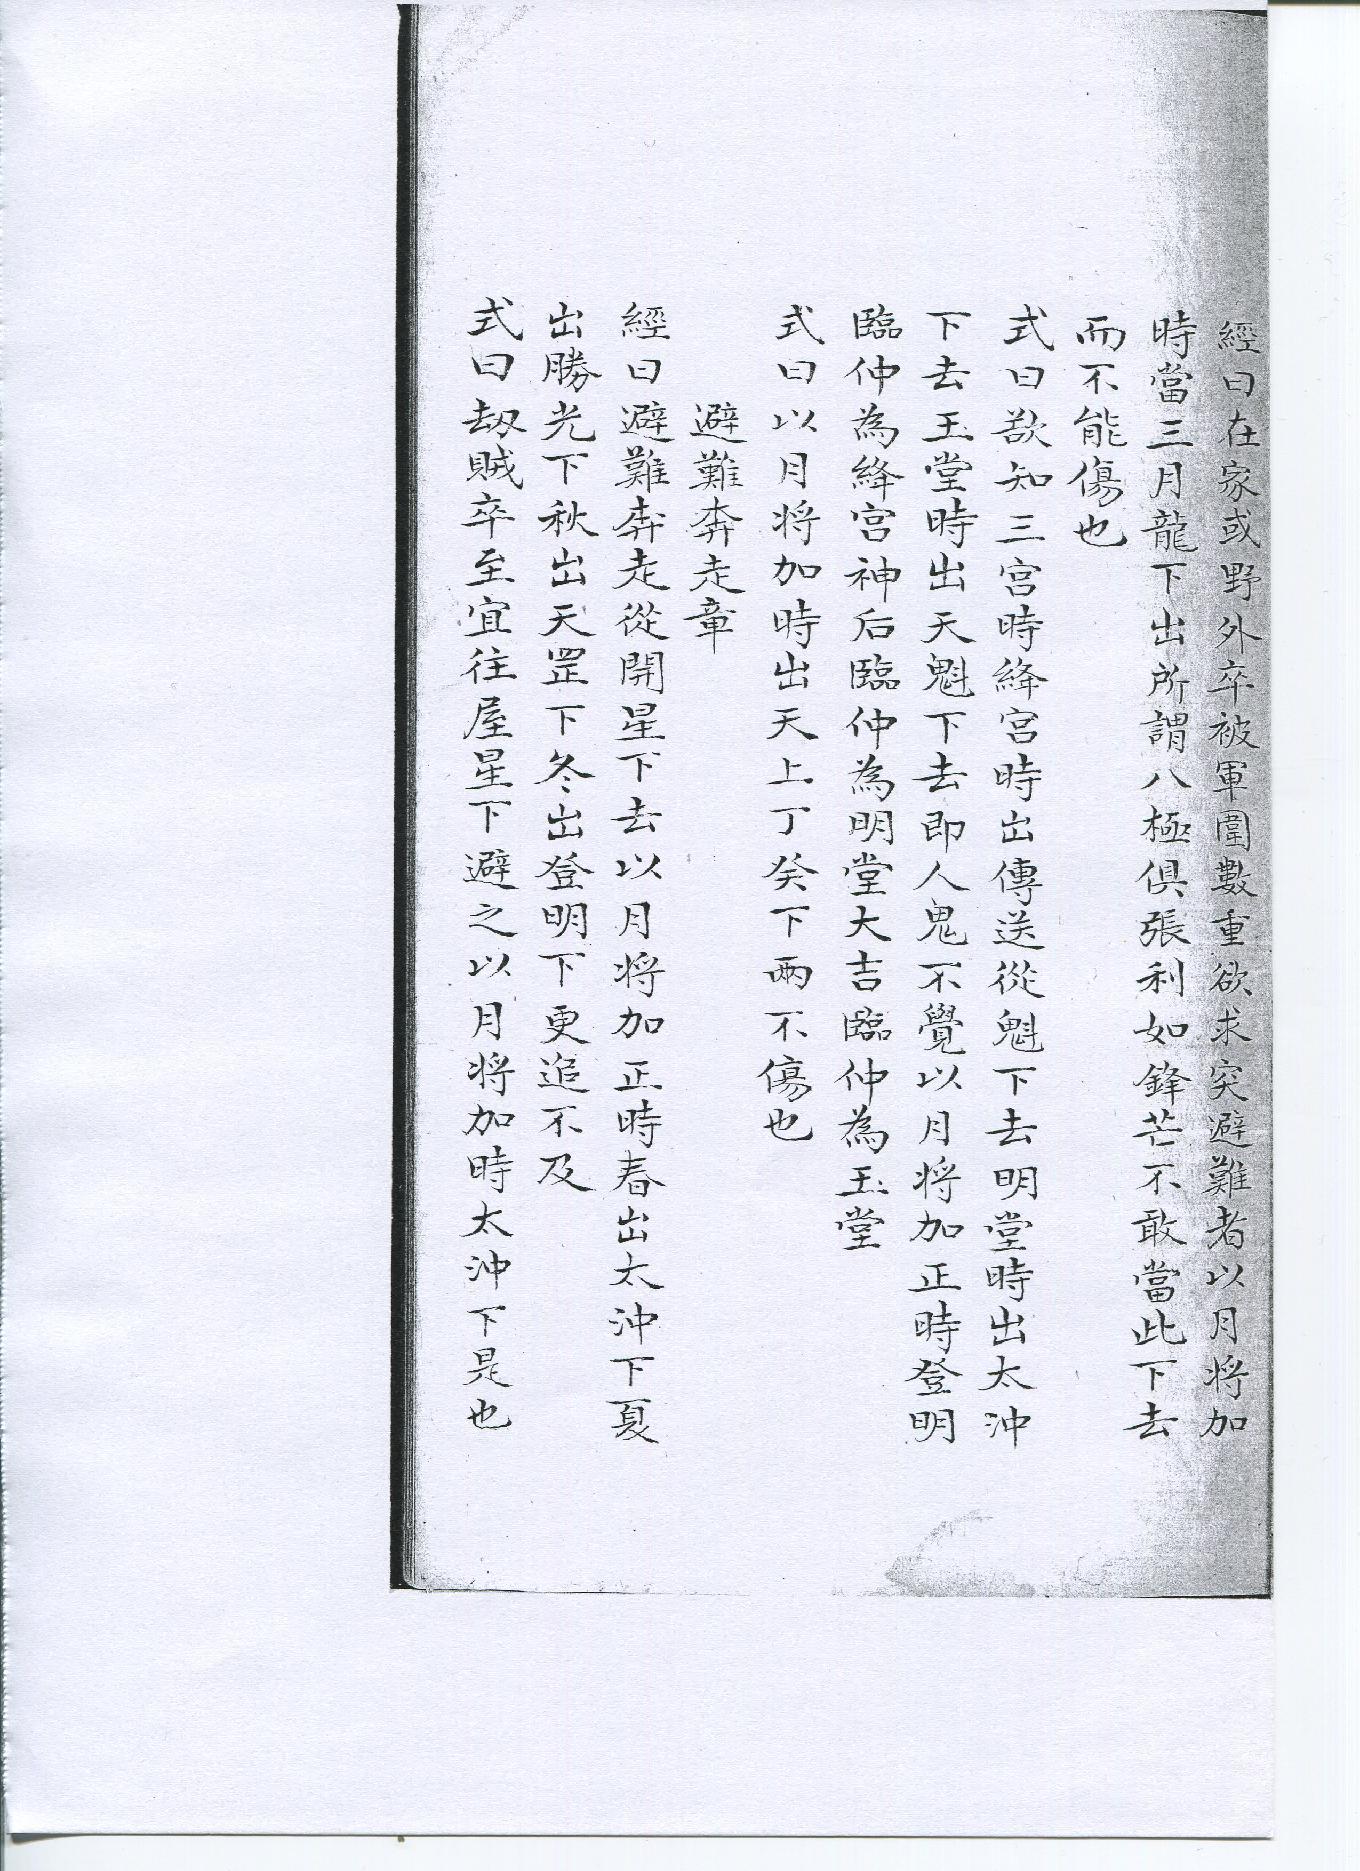 經曰在家或野外卒被軍圍數重欲求突避難者以月將加
時當三月龍下出所謂八極俱張利如鋒芒不敢當此下去
而不能傷也
式曰欲知三宮時絳宮時出傳送從魁下去明堂時出太沖
下去玉堂時出天魁下去即人鬼不覺以月將加正時登明
臨仲為絳宮神后臨仲為明堂大吉臨仲為玉堂
式曰以月將加時出天上丁癸下兩不傷也
避難奔走章
經曰避難奔走從開星下去以月將加正時春出太沖下夏
出勝光下秋出天罡下冬出登明下更追不及
式曰劫賊卒至宜往屋星下避之以月將加時太沖下是也